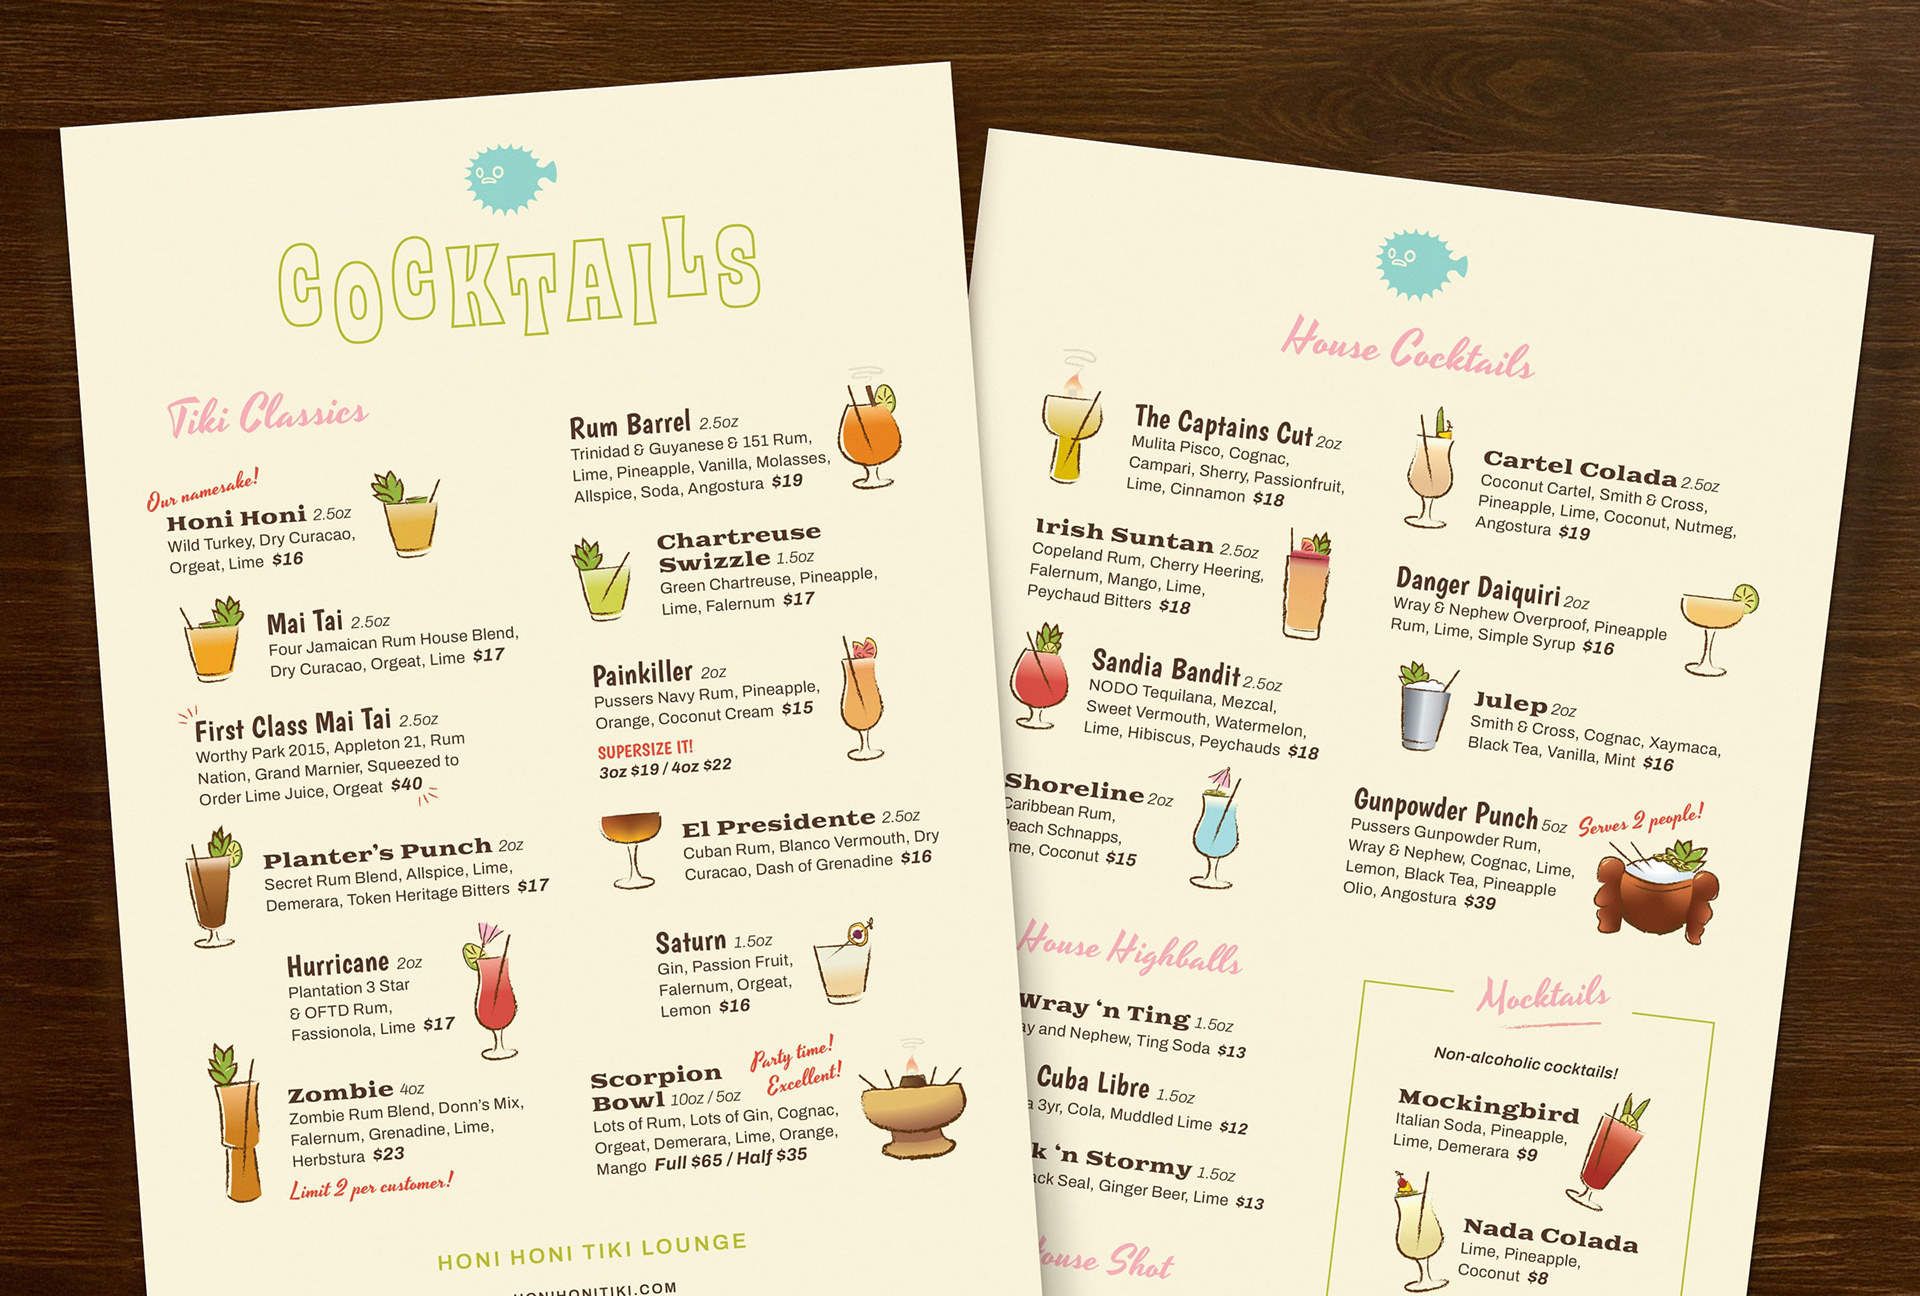 COCKTAILS
Tiki Classics
Our namesake!
Honi Honi 2.5oz
Wild Turkey, Dry Curacao,
Orgeat, Lime $16
Mai Tai 2.5oz
Four Jamaican Rum House Blend,
Dry Curacao, Orgeat, Lime $17
First Class Mai Tai 2.5oz
Worthy Park 2015, Appleton 21, Rum
Nation, Grand Marnier, Squeezed to
Order Lime Juice, Orgeat $40
Planter's Punch 2oz
Secret Rum Blend, Allspice, Lime,
Demerara, Token Heritage Bitters $17
Hurricane 2oz
Plantation 3 Star
& OFTD Rum,
Fassionola, Lime $17
Zombie 4oz
Zombie Rum Blend, Donn's Mix,
Falernum, Grenadine, Lime,
Herbstura $23
Limit 2 per customer!
Rum Barrel 2.5oz
Trinidad & Guyanese & 151 Rum,
Lime, Pineapple, Vanilla, Molasses,
Allspice, Soda, Angostura $19
Chartreuse
Swizzle 1.5oz
Green Chartreuse, Pineapple,
Lime, Falernum $17
Painkiller 2oz
Pussers Navy Rum, Pineapple,
Orange, Coconut Cream $15
SUPERSIZE IT!
3oz $19 / 4oz $22
El Presidente 2.5oz
Cuban Rum, Blanco Vermouth, Dry
Curacao, Dash of Grenadine $16
Saturn 1.5oz
Gin, Passion Fruit,
Falernum, Orgeat,
Lemon $16
Party time!
Excellent!
Scorpion
Bowl 10oz / 5oz
Lots of Rum, Lots of Gin, Cognac,
Orgeat, Demerara, Lime, Orange,
Mango Full $65 / Half $35
HONI HONI TIKI LOUNGE
HONIHONITIKI.COM
House Cocktails
The Captains Cut 2oz
Mulita Pisco, Cognac,
Campari, Sherry, Passionfruit,
Lime, Cinnamon $18
Irish Suntan 2.5oz
Copeland Rum, Cherry Heering,
Falernum, Mango, Lime,
Peychaud Bitters $18
Sandia Bandit 2.5oz
NODO Tequilana, Mezcal,
Sweet Vermouth, Watermelon,
Lime, Hibiscus, Peychauds $18
Shoreline 2oz
Caribbean Rum,
Peach Schnapps,
me, Coconut $15
Cartel Colada 2.5oz
Coconut Cartel, Smith & Cross,
Pineapple, Lime, Coconut, Nutmeg,
Angostura $19
Danger Daiquiri 2oz
Wray & Nephew Overproof, Pineapple
Rum, Lime, Simple Syrup $16
Julep 2oz
Smith & Cross, Cognac, Xaymaca,
Black Tea, Vanilla, Mint $16
Gunpowder Punch 5oz Serves 2 people!
Pussers Gunpowder Rum,
Wray & Nephew, Cognac, Lime,
Lemon, Black Tea, Pineapple
Olio, Angostura $39
House Highballs
Wray 'n Ting 1.5oz
ay and Nephew, Ting Soda $13
Cuba Libre 1.5oz
a 3yr, Cola, Muddled Lime $12
k 'n Stormy 1.5oz
ack Seal, Ginger Beer, Lime $13
House Shot
Mocktails
Non-alcoholic cocktails!
Mockingbird
Italian Soda, Pineapple,
Lime, Demerara $9
Nada Colada
Lime, Pineapple,
Coconut $8